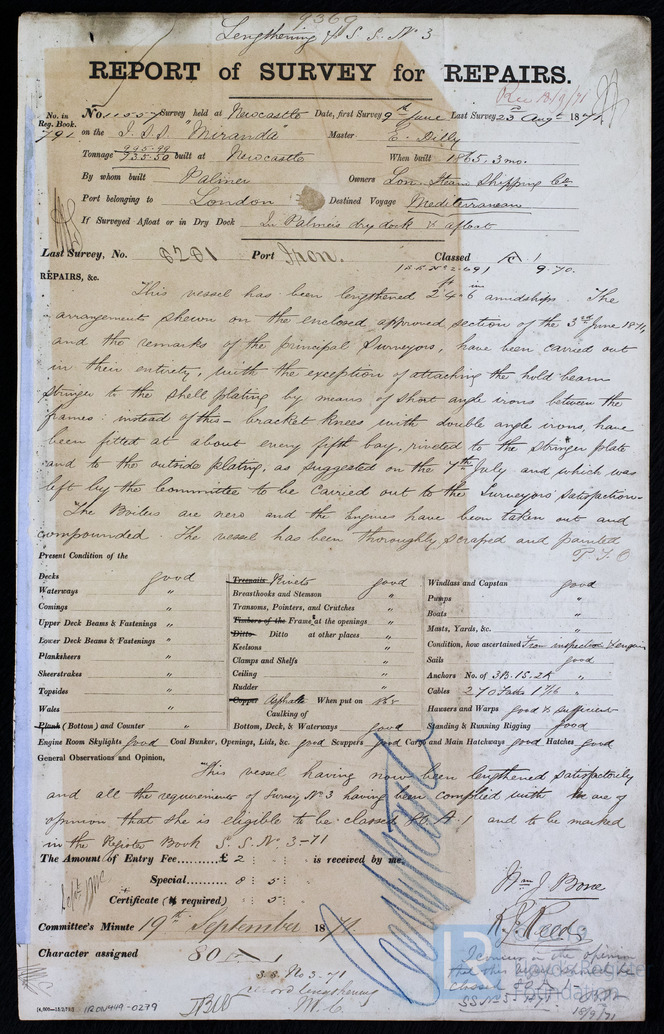 9369
Lengthening & S. S. No 3
REPORT of SURVEY for REPAIRS.
Rec 18/9/71
No. in Reg. Book. No. 11557 Survey held at Newcastle Date, first Survey 9th June Last Survey 23 Augt 1871
791 on the I.S.S. "Miranda" Master E. Dilly
Tonnage 995.99 735.50 built at Newcastle When built 1865. 3 mo.
By whom built Palmer Owners Lon. Steam Shipping Co
Port belonging to London Destined Voyage Mediterranean
If Surveyed Afloat or in Dry Dock In Palmers dry dock & afloat
Last Survey, No. 6201 Port Iron. Classed A 1
9.70.
REPAIRS, &c.
This vessel has been lengthened amidships. The
arrangements shewn on the enclosed approved section of the 3rd June 1871,
and the remarks of the principal Surveyors, have been carried out
in their entirety, with the exception of attaching the hold beam
stringer to the shell plating by means of short angle irons between the
frames: instead of this - bracket knees with double angle irons, have
been fitted at about every fifth bay, riveted to the stringer plate
and to the outside plating, as suggested on the 7th July and which was
left by the Committee to be carried out to the Surveyors' satisfaction.
The Boilers are new and the Engines have been taken out and
compounded. The vessel has been thoroughly scraped and painted
P.T.O
Present Condition of the
Decks good
Waterways "
Comings "
Upper Deck Beams & Fastenings "
Lower Deck Beams & Fastenings "
Planksheers "
Sheerstrakes "
Topsides "
Wales "
Plank (Bottom) and Counter "
Treenails Rivets good
Breasthooks and Stemson "
Transoms, Pointers, and Crutches "
Timbers of the Frame at the openings "
Ditto Ditto at other places "
Keelsons "
Clamps and Shelfs "
Ceiling "
Rudder "
Copper Asphalte When put on
Caulking of
Bottom, Deck, & Waterways good
Windlass and Capstan good
Pumps "
Boats "
Masts, Yards, &c. "
Condition, how ascertained From inspection & enquiry
Sails good
Anchors No. of 3B. 1S. 2K "
Cables 270 Faths 1 7/16 "
Hawsers and Warps good & sufficient
Standing & Running Rigging good
Engine Room Skylights good Coal Bunker, Openings, Lids, &c. good Scuppers good Cargo and Main Hatchways good Hatches good
General Observations and Opinion,
This vessel having now been lengthened satisfactorily
and all the requirements of Survey No 3 having been complied with we are of
opinion that she is eligible to be classed A. 1 and to be marked
in the Register Book S. S. No. 3-71
The Amount of Entry Fee......£ 2 : : is received by me,
Special ...... 8 : 5 :
Certificate (if required) : 5 :
Wm J. Bone
Committee's Minute 19th September 1871.
Character assigned 80 A 1
S.S. No 3.71
record lengthening
I concur in the opinion
18/9/71
IRON449-0279